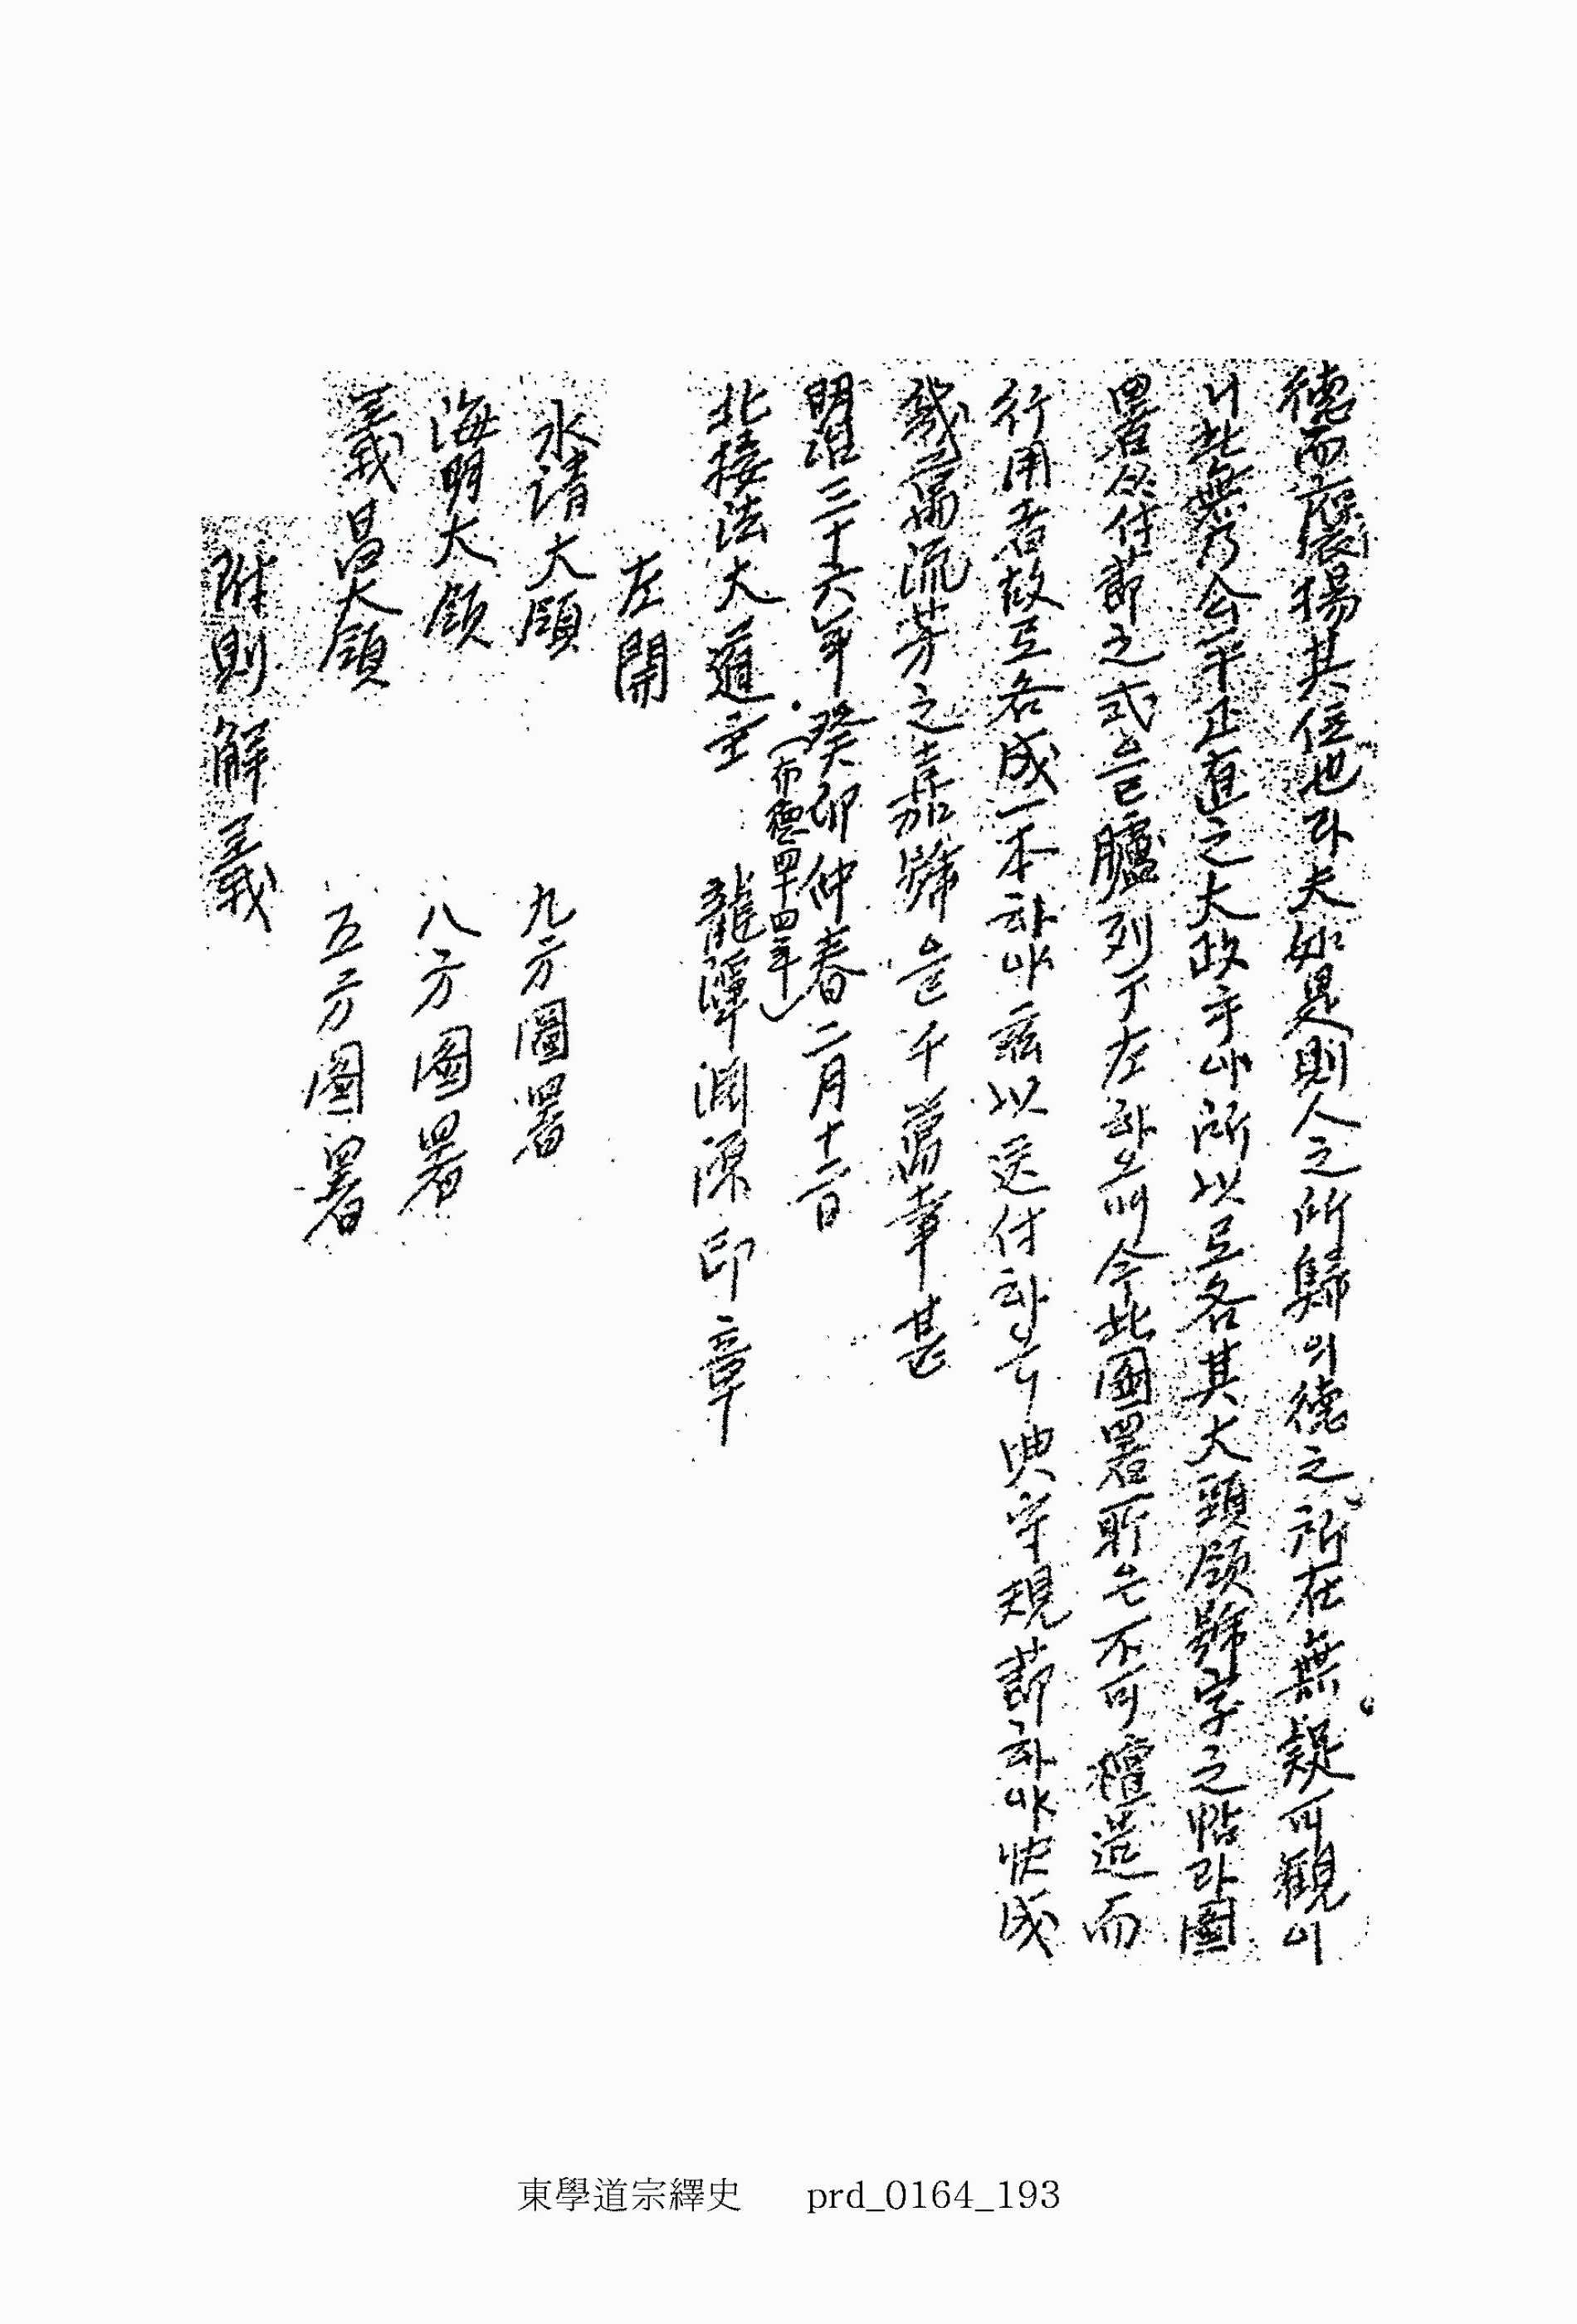 德而應揚其位也라夫如是則人之所歸의德之所在無疑可觀이
니此無乃公平正直之大政乎아所以로各其大頭領號字之帖과圖
署分付節之式을臚列于左하노니今此圖署所은不可擅造而
行用者故로各成一本하야玆以送付하니典守規節하야快成
萬流芳之嘉號을千萬幸甚
明治三十六年癸卯仲春二月十二日
(布德四十四年)
北接法大道主 龍潭淵源印章
左開
水淸大領 九方圖署
海明大領 八方圖署
義昌大領 五方圖署
附則解義
東學道宗繹史 prd_0164_193